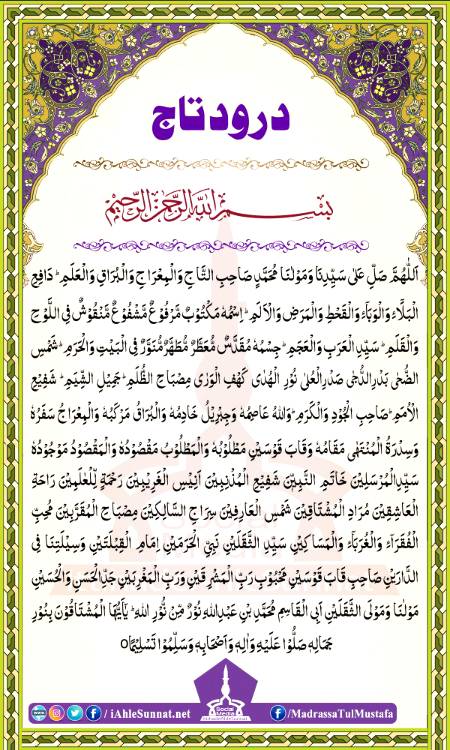 درود تاج
بِسْمِ اللهِ الرَّحْمٰنِ الرَّحِيْمِ
اَللّٰهُمَّ صَلِّ عَلٰى سَيِّدِنَا وَمَوْلٰنَا مُحَمَّدٍ صَاحِبِ التَّاجِ وَالْمِعْرَاجِ وَالْبُرَاقِ وَالْعَلَمِ ؕ دَافِعِ
الْبَلَآءِ وَالْوَبَآءِ وَالْقَحْطِ وَالْمَرَضِ وَالْاَلَمِ ؕ اِسْمُهٗ مَكْتُوْبٌ مَّرْفُوْعٌ مَّشْفُوْعٌ مَّنْقُوْشٌ فِى اللَّوْحِ
وَالْقَلَمِ ؕ سَيِّدِ الْعَرَبِ وَالْعَجَمِ ؕ جِسْمُهٗ مُقَدَّسٌ مُّعَطَّرٌ مُّطَهَّرٌ مُّنَوَّرٌ فِى الْبَيْتِ وَالْحَرَمِ ؕ شَمْسِ
الضُّحٰى بَدْرِ الدُّجٰى صَدْرِ الْعُلٰى نُوْرِ الْهُدٰى كَهْفِ الْوَرٰى مِصْبَاحِ الظُّلَمِ ؕ جَمِيْلِ الشِّيَمِ ؕ شَفِيْعِ
الْاُمَمِ ؕ صَاحِبِ الْجُوْدِ وَالْكَرَمِ ؕ وَاللهُ عَاصِمُهٗ وَجِبْرِيْلُ خَادِمُهٗ وَالْبُرَاقُ مَرْكَبُهٗ وَالْمِعْرَاجُ سَفَرُهٗ
وَسِدْرَةُ الْمُنْتَهٰى مَقَامُهٗ وَقَابَ قَوْسَيْنِ مَطْلُوْبُهٗ وَالْمَطْلُوْبُ مَقْصُوْدُهٗ وَالْمَقْصُوْدُ مَوْجُوْدُهٗ
سَيِّدِ الْمُرْسَلِيْنَ خَاتَمِ النَّبِيِّيْنَ شَفِيْعِ الْمُذْنِبِيْنَ اَنِيْسِ الْغَرِيْبِيْنَ رَحْمَةٍ لِّلْعٰلَمِيْنَ رَاحَةِ
الْعَاشِقِيْنَ مُرَادِ الْمُشْتَاقِيْنَ شَمْسِ الْعَارِفِيْنَ سِرَاجِ السَّالِكِيْنَ مِصْبَاحِ الْمُقَرَّبِيْنَ مُحِبِّ
الْفُقَرَآءِ وَالْغُرَبَآءِ وَالْمَسَاكِيْنِ سَيِّدِ الثَّقَلَيْنِ نَبِيِّ الْحَرَمَيْنِ اِمَامِ الْقِبْلَتَيْنِ وَسِيْلَتِنَا فِى
الدَّارَيْنِ صَاحِبِ قَابَ قَوْسَيْنِ مَحْبُوْبِ رَبِّ الْمَشْرِقَيْنِ وَرَبِّ الْمَغْرِبَيْنِ جَدِّ الْحَسَنِ وَالْحُسَيْنِ
مَوْلٰنَا وَمَوْلَى الثَّقَلَيْنِ اَبِى الْقَاسِمِ مُحَمَّدِ بْنِ عَبْدِ اللهِ نُوْرٍ مِّنْ نُّوْرِ اللهِ ؕ يٰٓاَيُّهَا الْمُشْتَاقُوْنَ بِنُوْرِ
جَمَالِهٖ صَلُّوْا عَلَيْهِ وَاٰلِهٖ وَاَصْحَابِهٖ وَسَلِّمُوْا تَسْلِيْمًا ○
/ iAhleSunnat.net
Social Media
/MadrassaTulMustafa